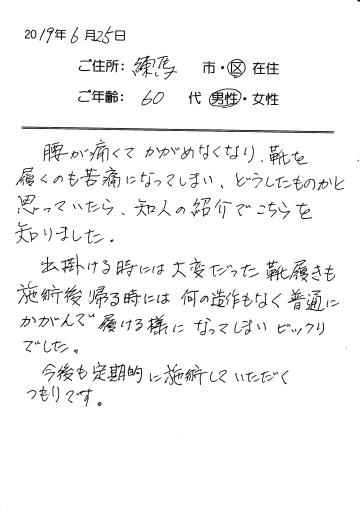 2019年6月25日
ご住所: 練馬 市・区 在住
ご年齢: 60 代 男性・女性
腰が痛くてかがめなくなり、靴を
履くのも苦痛になってしまい、どうしたものかと
思っていたら、知人の紹介でこちらを
知りました。
出掛ける時には大変だった靴履きも
施術後帰る時には何の造作もなく普通に
かがんで履ける様になってしまいビックリ
でした。
今後も定期的に施術していただく
つもりです。